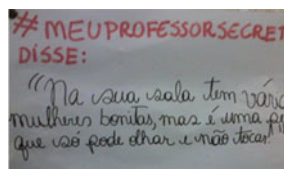 #MEUPROFESSORSECRET
DISSE:
"Na sua sala tem vária
mulheres bonitas, mas é uma pe
que só pode olhar e não tocar."